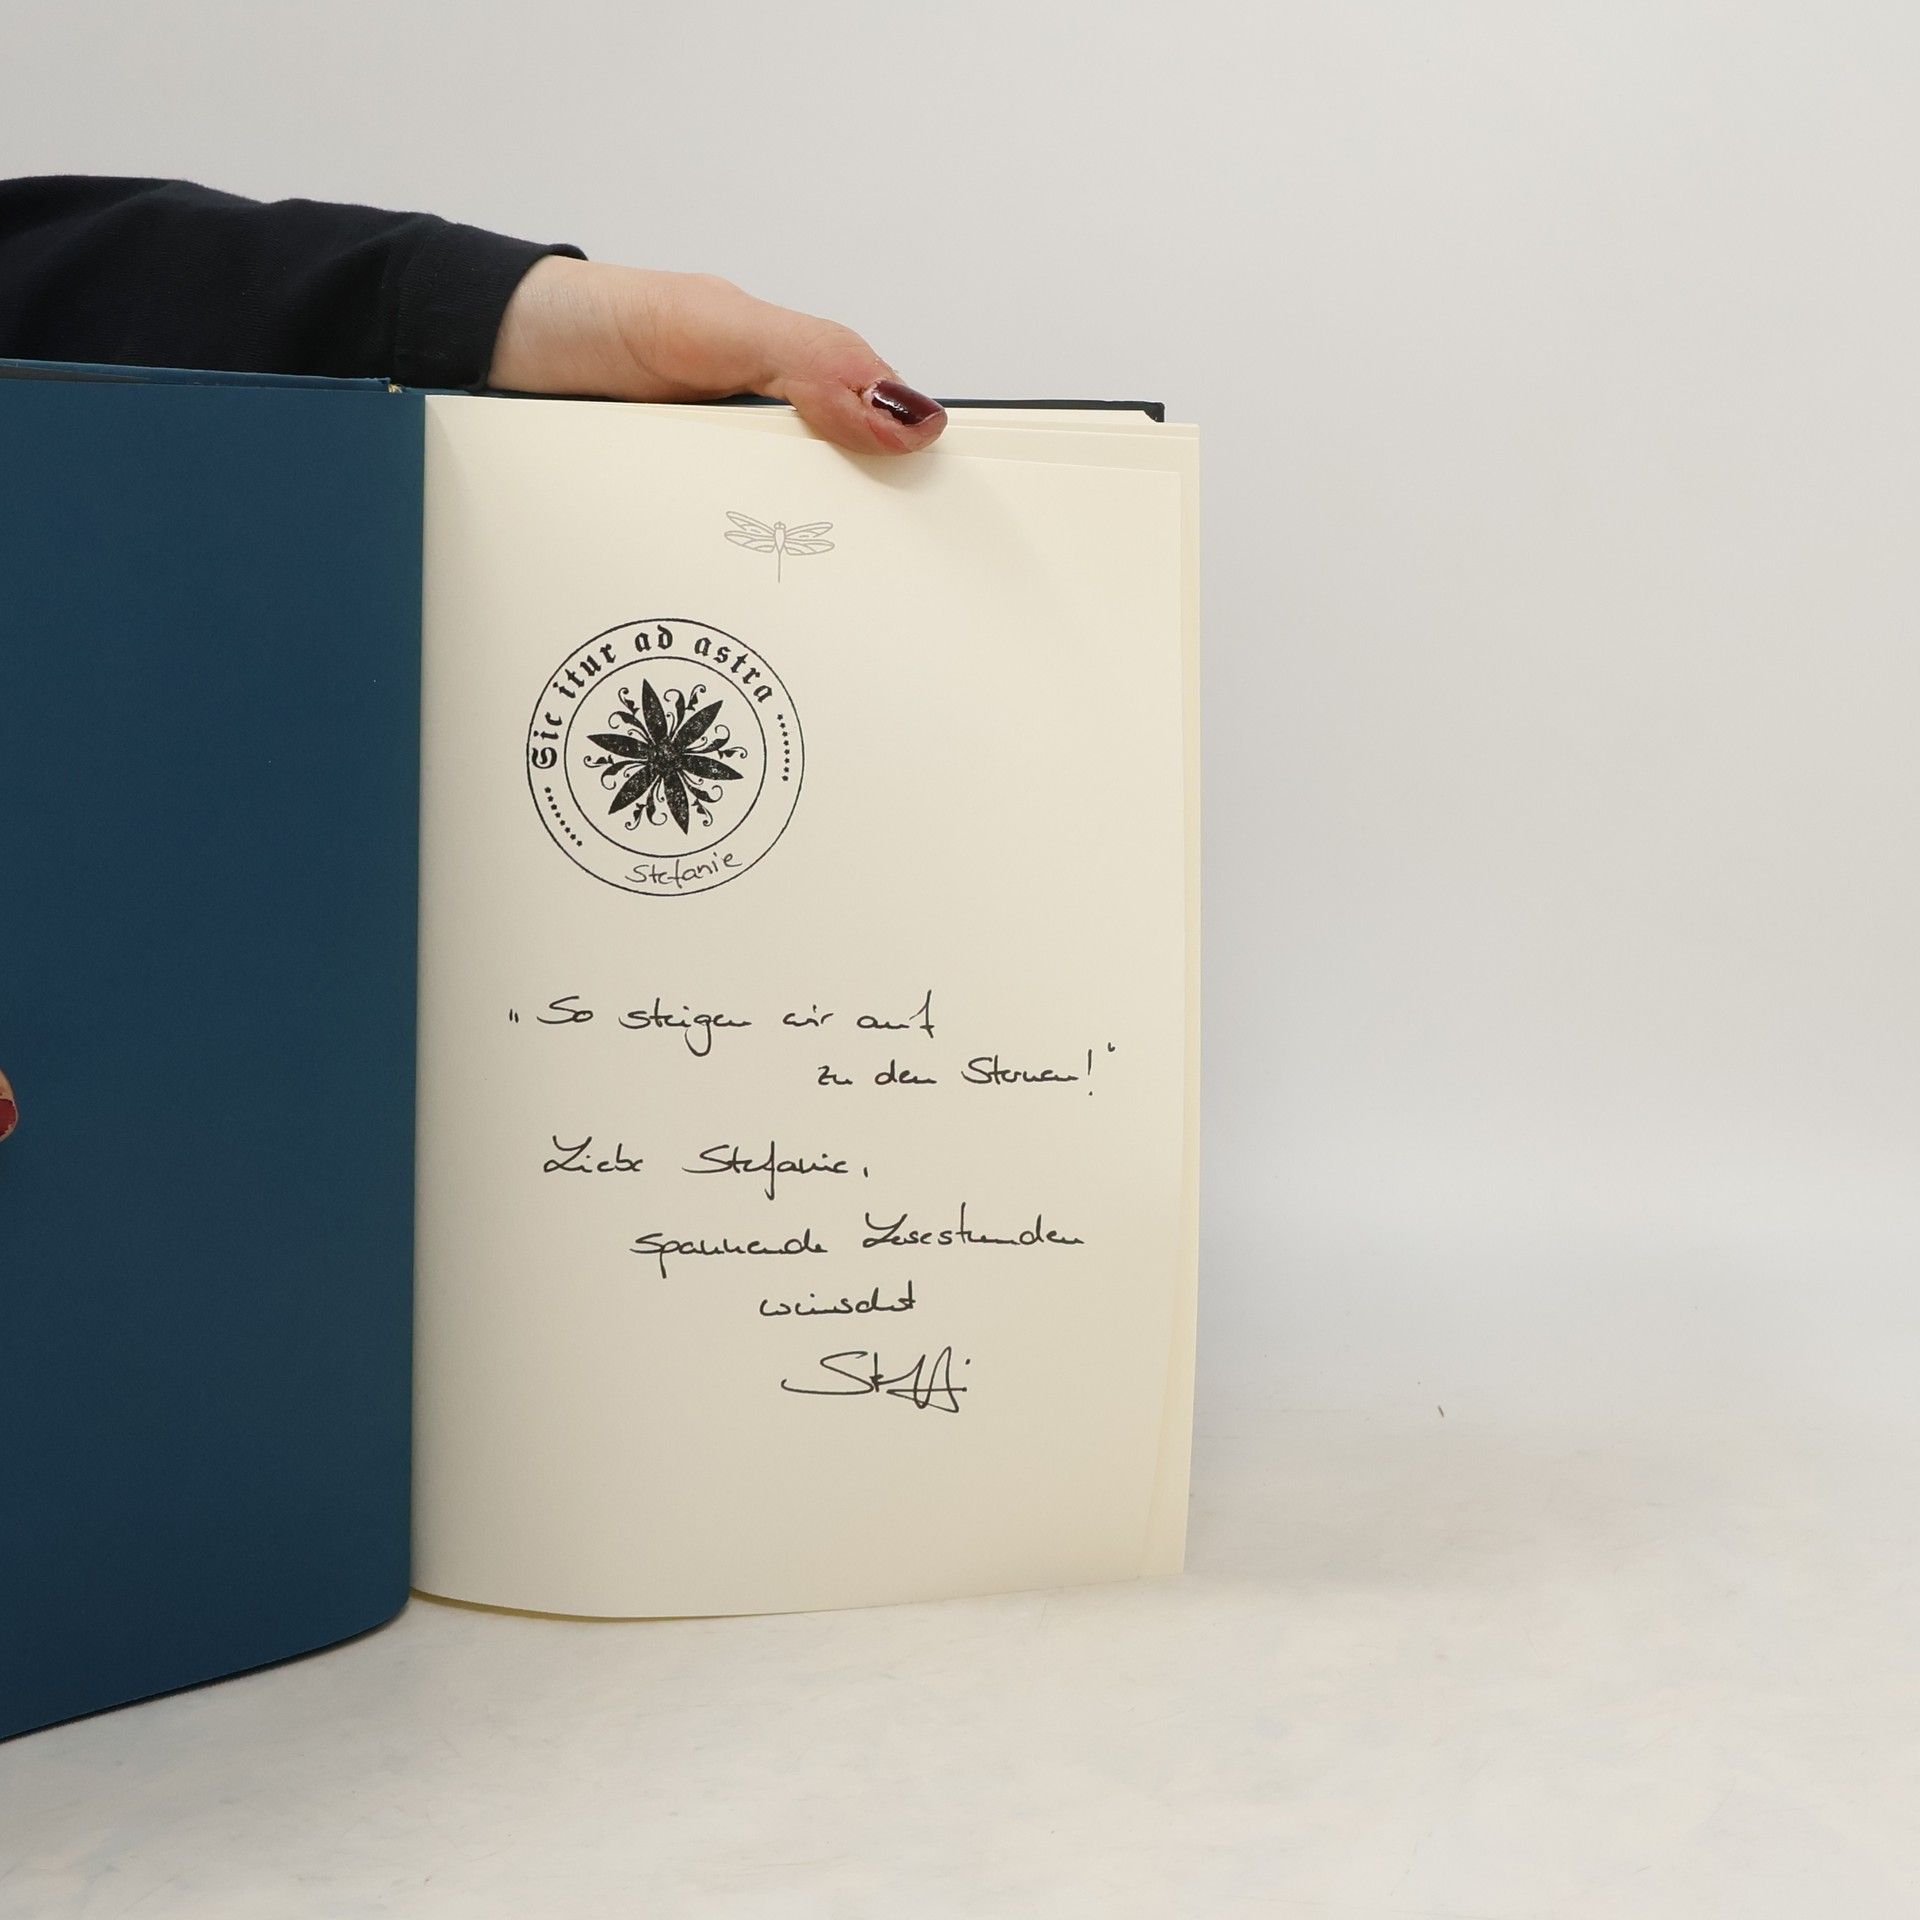 Sic itur ad astra
Stefanie
"So steigen wir auf
zu den Sternen!"
Liebe Stefanie,
spannende Lesestunden
wünscht
Steffi